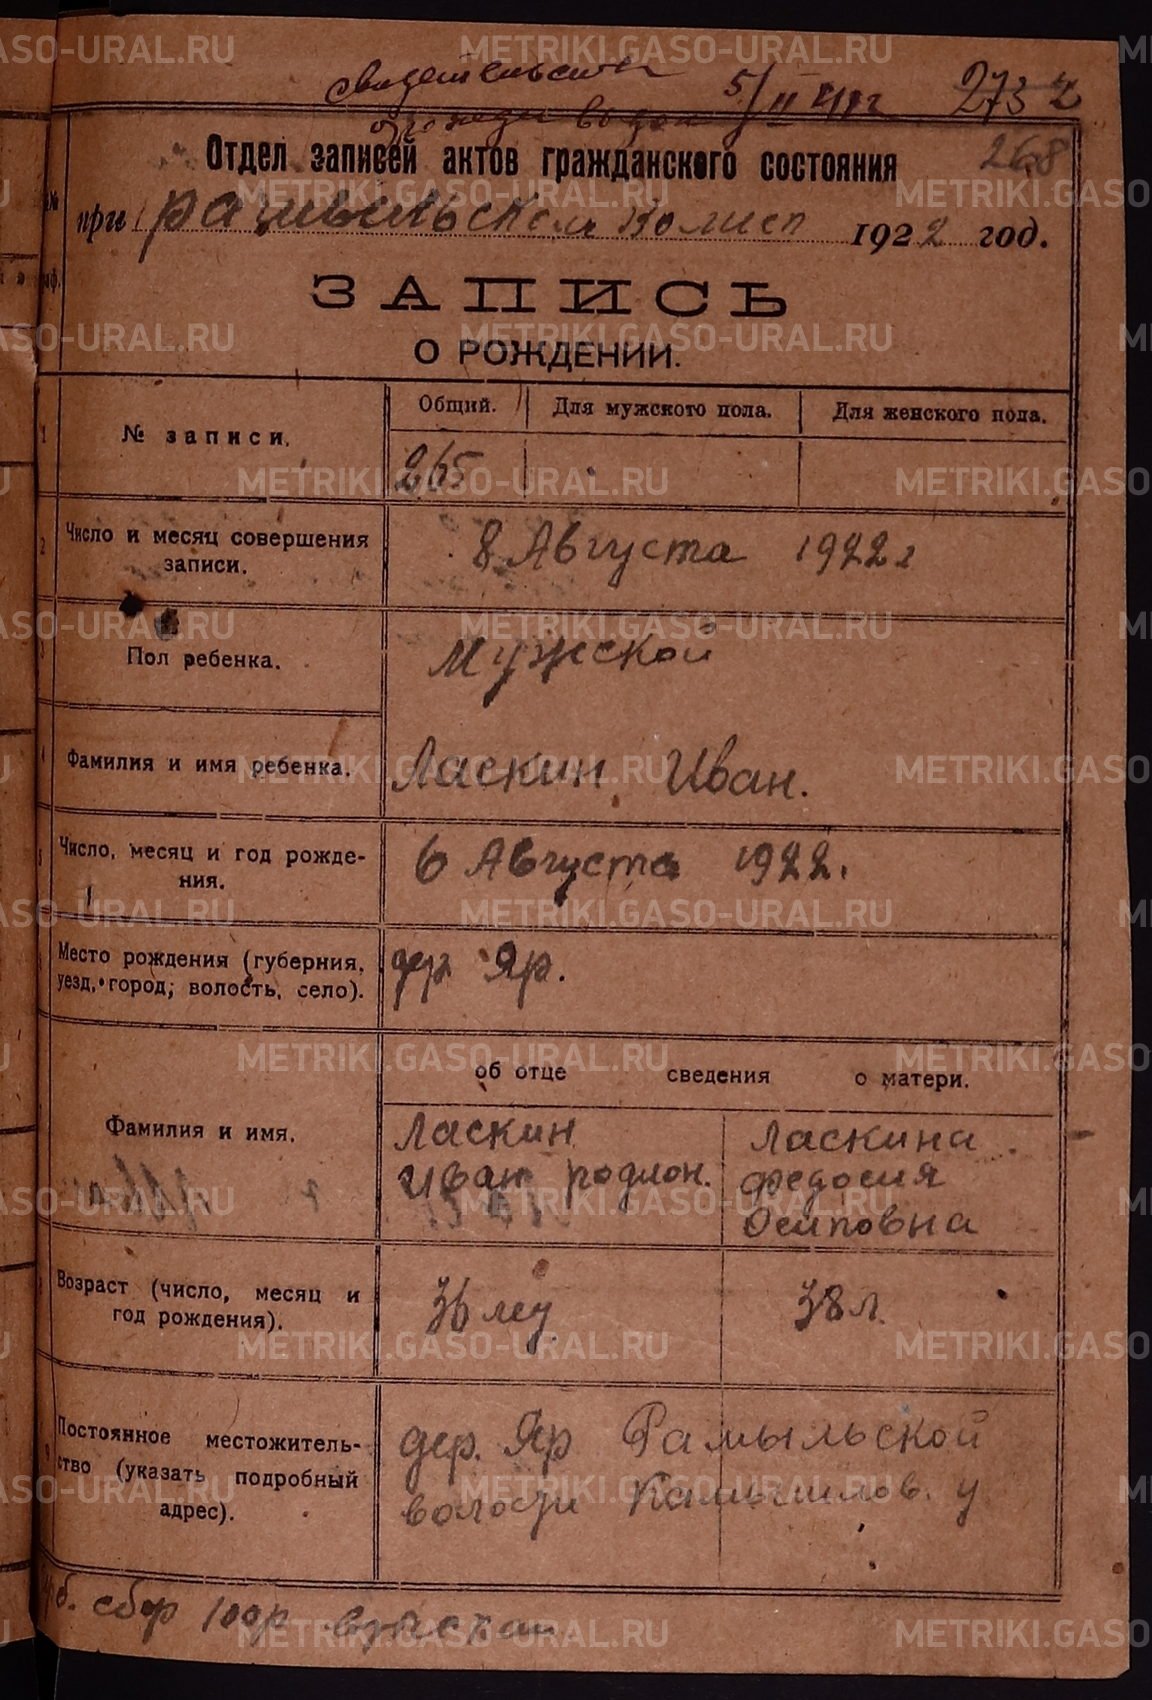 свидетельство 5/II 273 2
о рождении выдан
268
Отдел записей актов гражданского состояния
при Рамыльском Волисп 1922 год.
ЗАПИСЬ
О РОЖДЕНИИ.
№ записи. Общий. Для мужского пола. Для женского пола.
265
Число и месяц совершения записи. 8 Августа 1922 г
Пол ребенка. Мужской
Фамилия и имя ребенка. Ласкин Иван.
Число, месяц и год рожде-
ния. 6 Августа 1922.
Место рождения (губерния,
уезд, город, волость, село). дер Яр.
об отце сведения о матери.
Фамилия и имя.
Ласкин Ласкина
Иван родион. Федосия
Осиповна
Возраст (число, месяц и
год рождения). 36 лет 38 л.
Постоянное местожитель-
ство (указать подробный
адрес).
дер. Яр Рамыльской
волости Камышлов. у
сбор 100р взыскан
METRIKI.GASO-URAL.RU